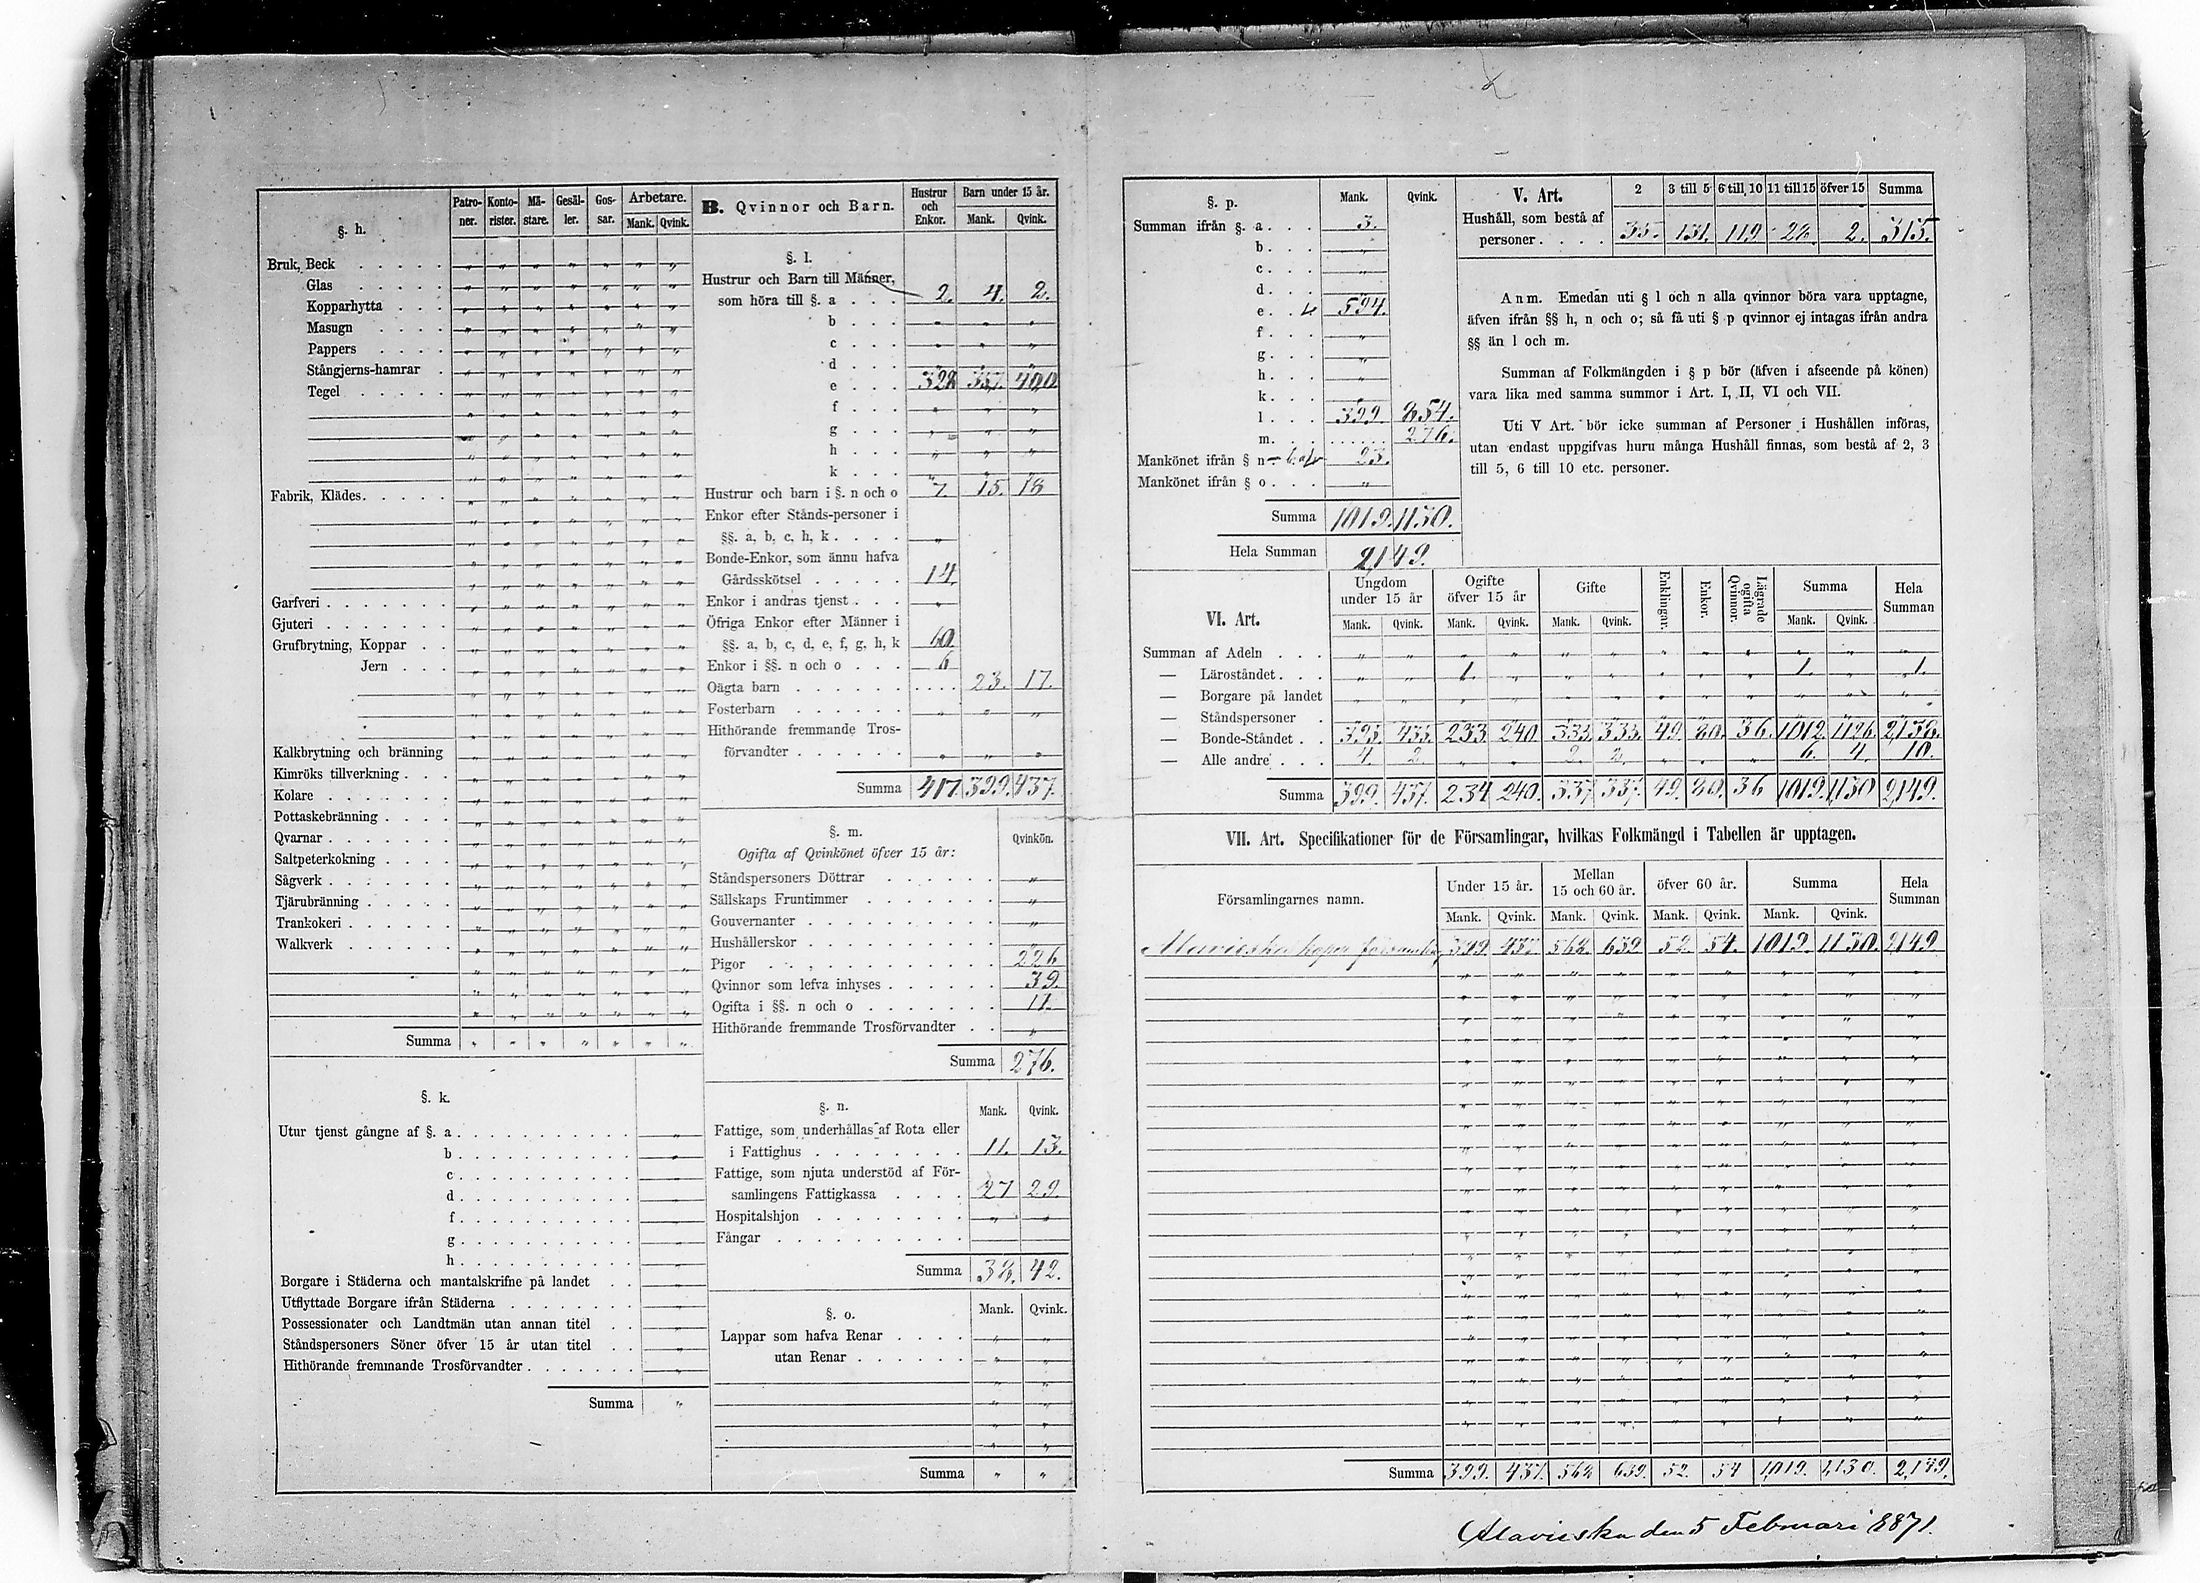 §. h.
Patro-ner. Konto-rister. Mä-stare. Gesäl-ler. Gos-sar. Arbetare. Mank. Qvink.
Bruk, Beck
Glas
Kopparhytta
Masugn
Pappers
Stångjerns-hamrar
Tegel
Fabrik, Klädes
Garfveri
Gjuteri
Grufbrytning, Koppar
Jern
Kalkbrytning och bränning
Kimröks tillverkning
Kolare
Pottaskebränning
Qvarnar
Saltpeterkokning
Sågverk
Tjärubränning
Trankokeri
Walkverk
Summa
§. k.
Utur tjenst gångne af §. a
b
c
d
f
g
h
Borgare i Städerna och mantalskrifne på landet
Utflyttade Borgare ifrån Städerna
Possessionater och Landtmän utan annan titel
Ståndspersoners Söner öfver 15 år utan titel
Hithörande fremmande Trosförvandter
Summa
B. Qvinnor och Barn. Hustrur och Enkor. Barn under 15 år. Mank. Qvink.
§. l.
Hustrur och Barn till Männer,
som höra till §. a 2. 4. 2.
b
c
d
e 328 357. 400
f
g
h
k
Hustrur och barn i §. n och o 7. 15. 18
Enkor efter Stånds-personer i
§§. a, b, c, h, k
Bonde-Enkor, som ännu hafva
Gårdsskötsel 14.
Enkor i andras tjenst
Öfriga Enkor efter Männer i
§§. a, b, c, d, e, f, g, h, k 60.
Enkor i §§. n och o 6
Oägta barn 23. 17.
Fosterbarn
Hithörande fremmande Tros-
förvandter
Summa 417. 399. 437.
§. m.
Ogifta af Qvinkönet öfver 15 år: Qvinkön.
Ståndspersoners Döttrar
Sällskaps Fruntimmer
Gouvernanter
Hushållerskor
Pigor 226
Qvinnor som lefva inhyses 39.
Ogifta i §§. n och o 11.
Hithörande fremmande Trosförvandter
Summa 276.
§. n. Mank. Qvink.
Fattige, som underhållas af Rota eller
i Fattighus 11. 13.
Fattige, som njuta understöd af För-
samlingens Fattigkassa 27 29.
Hospitalshjon
Fångar
Summa 38. 42.
§. o. Mank. Qvink.
Lappar som hafva Renar
utan Renar
Summa
§. p. Mank. Qvink.
Summan ifrån §. a 3.
b
c
d
e 594.
f
g
h
k
l 399. 854.
m 276.
Mankönet ifrån § n 23.
Mankönet ifrån § o
Summa 1019. 1130.
Hela Summan 2,149.
V. Art. 2 3 till 5 6 till 10 11 till 15 öfver 15 Summa
Hushåll, som bestå af
personer 35. 131. 119 28 2. 315.
Anm. Emedan uti § l och n alla qvinnor böra vara upptagne,
äfven ifrån §§ h, n och o; så få uti § p qvinnor ej intagas ifrån andra
§§ än l och m.
Summan af Folkmängden i § p bör (äfven i afseende på könen)
vara lika med samma summor i Art. I, II, VI och VII.
Uti V Art. bör icke summan af Personer i Hushållen införas,
utan endast uppgifvas huru många Hushåll finnas, som bestå af 2, 3
till 5, 6 till 10 etc. personer.
VI. Art. Ungdom under 15 år Ogifte öfver 15 år Gifte Enklingar. Enkor. Lägrade ogifta Qvinnor. Summa Hela Summan
Mank. Qvink. Mank. Qvink. Mank. Qvink. Mank. Qvink.
Summan af Adeln
— Läroståndet 1. 1. 1.
— Borgare på landet
— Ståndspersoner
— Bonde-Ståndet 395. 435. 233 240. 335. 335. 49. 80. 36 1012. 1126. 2,138.
— Alle andre 4. 2 2. 2. 6. 4. 10.
Summa 399. 437. 234 240. 337. 337. 49. 80. 36 1019. 1,130 2,149.
VII. Art. Specifikationer för de Församlingar, hvilkas Folkmängd i Tabellen är upptagen.
Församlingarnes namn. Under 15 år. Mellan 15 och 60 år. öfver 60 år. Summa Hela Summan
Mank. Qvink. Mank. Qvink. Mank. Qvink. Mank. Qvink.
Alavieska församling 399. 437. 568. 639. 52. 54. 1019. 1130. 2149
Summa 399. 437. 568 639. 52. 54 1,019. 1,130. 2,149.
Alavieska den 5 Februari 1871.